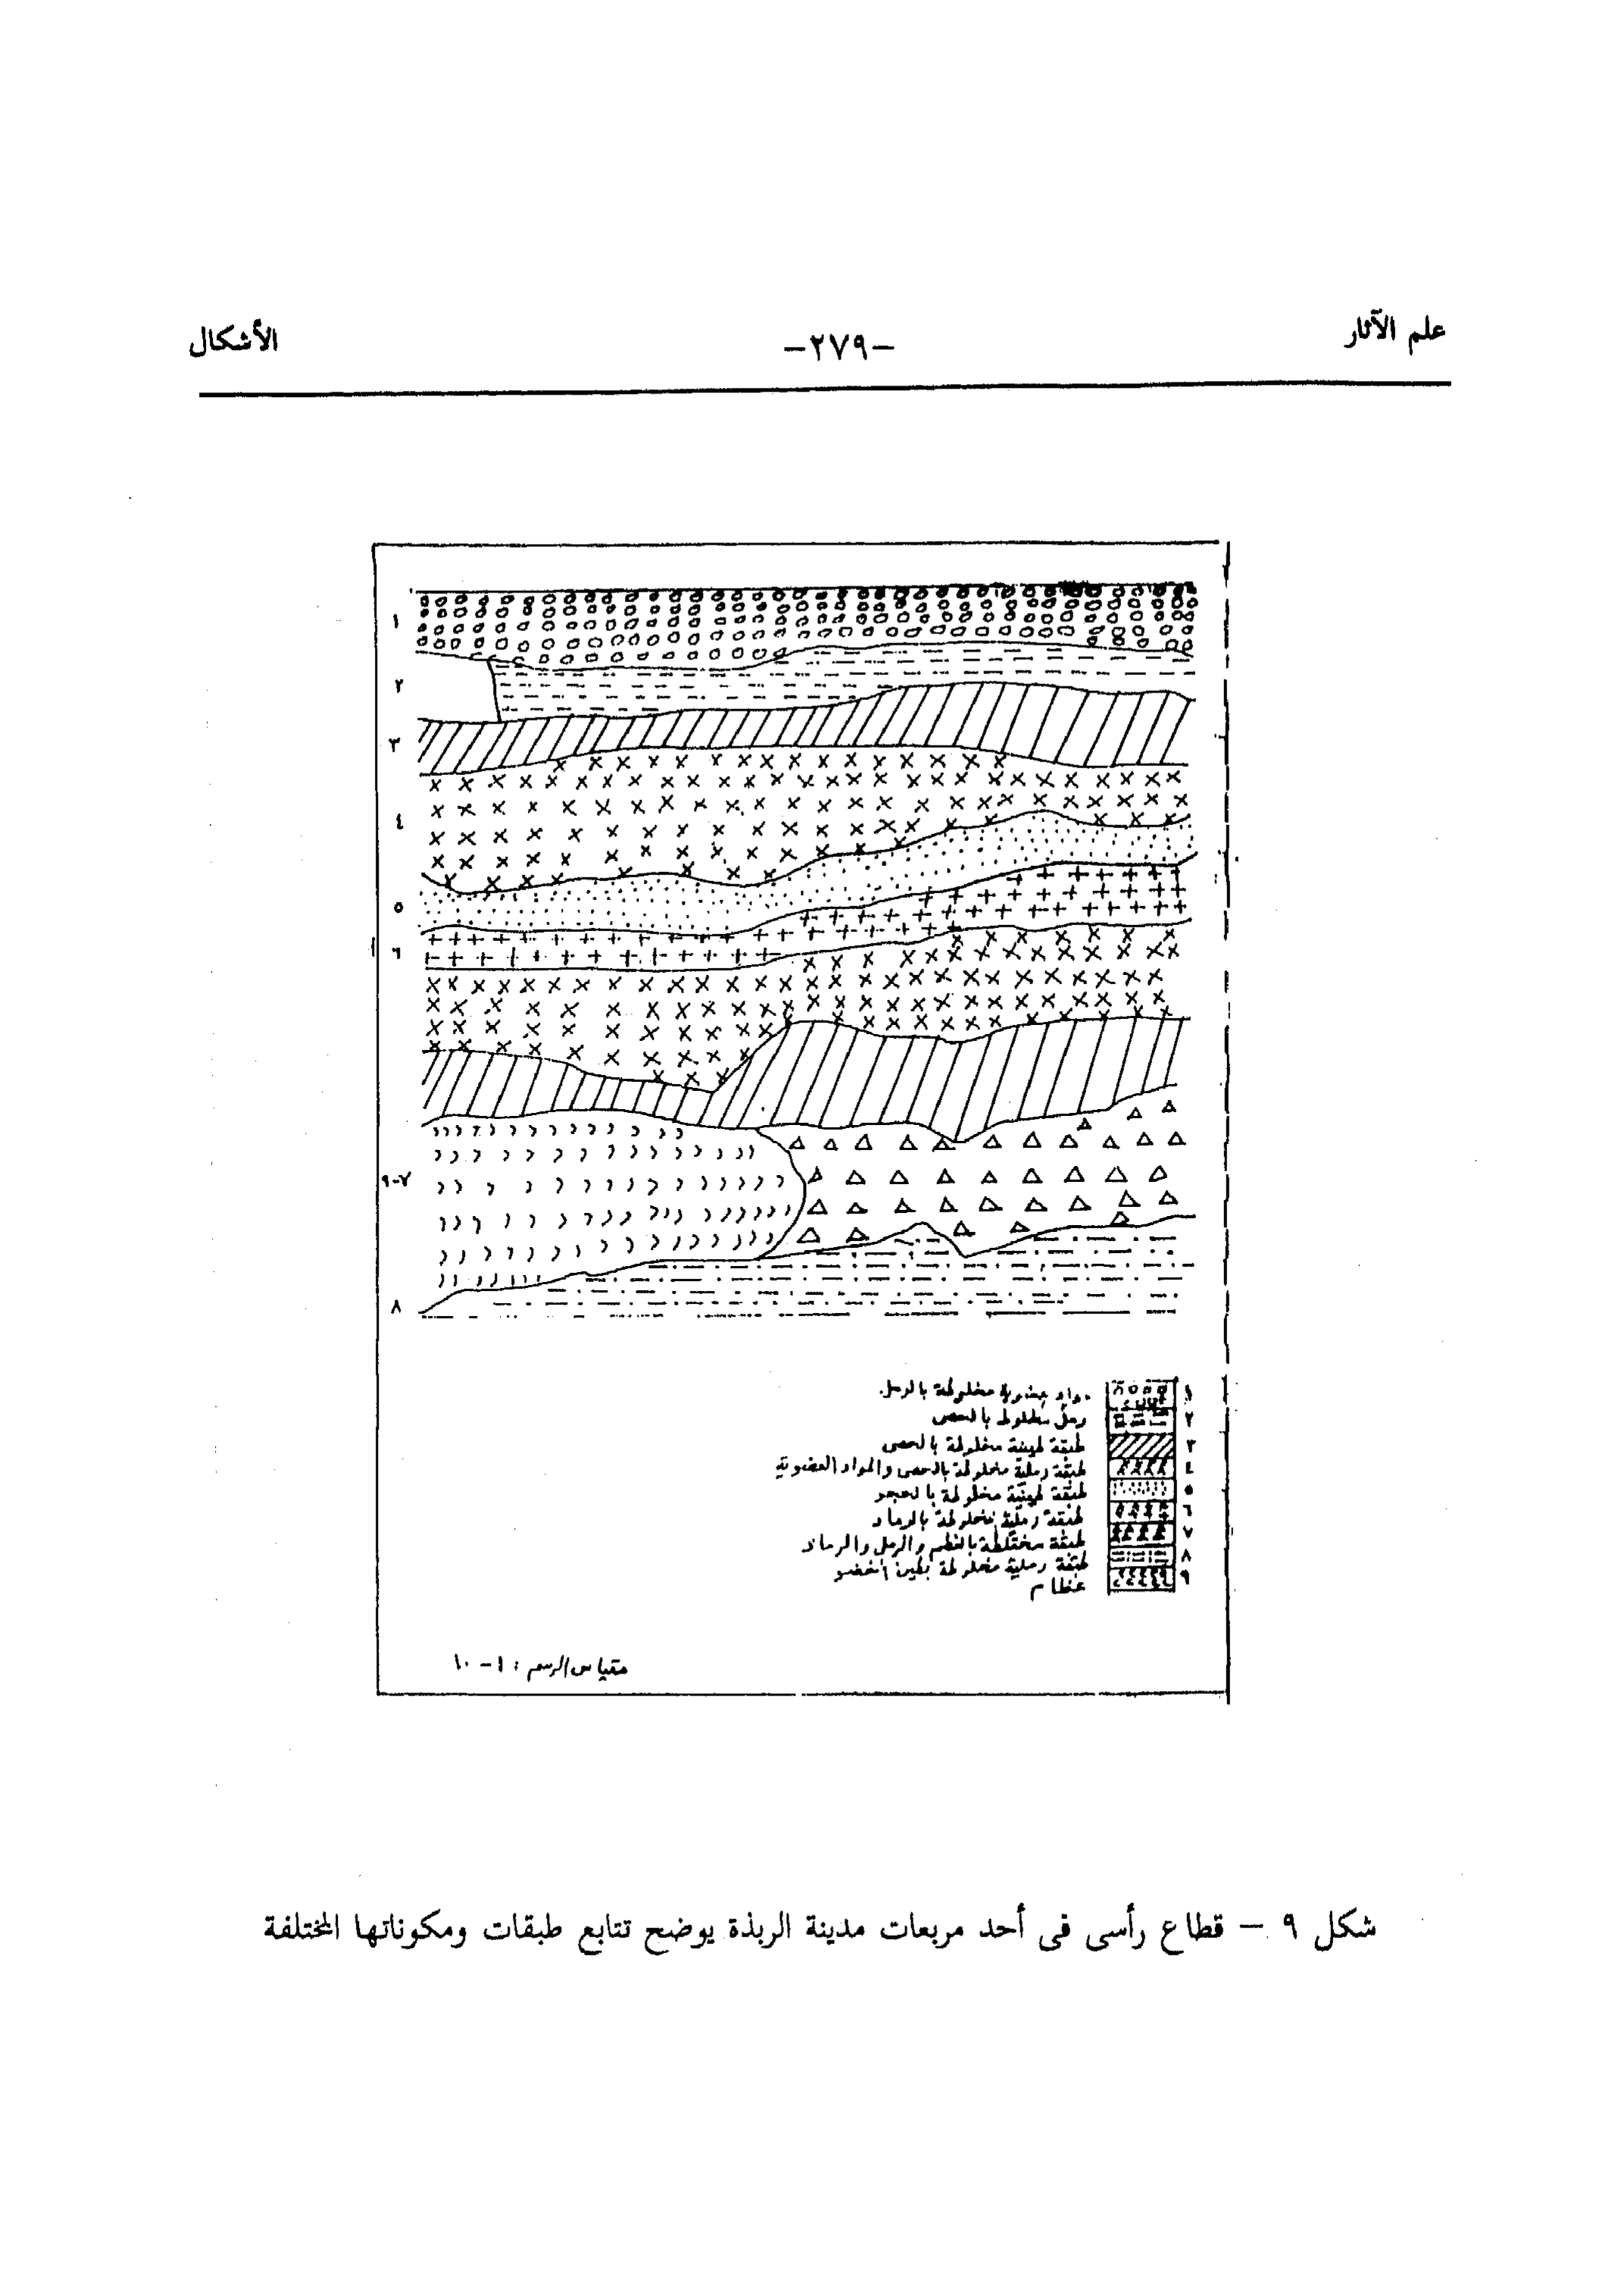 علم الآثار
-٢٧٩-
الأشكال
١
٢
٣
٤
٥
٦
٧-٩
٨
١ مواد عضوية مخلوطة بالرمل
٢ رمل مخلوط بالحصى
٣ طبقة طينية مخلوطة بالحصى
٤ طبقة رملية مخلوطة بالحصى والمواد العضوية
٥ طبقة طينية مخلوطة بالحجر
٦ طبقة رملية مخلوطة بالرماد
٧ طبقة مختلطة بالعظم والرمل والرماد
٨ طبقة رملية مخلوطة بطين أخضر
٩ عظام
مقياس الرسم : ١-١٠
شكل ٩ – قطاع رأسى فى أحد مربعات مدينة الربذة يوضح تتابع طبقات ومكوناتها المختلفة